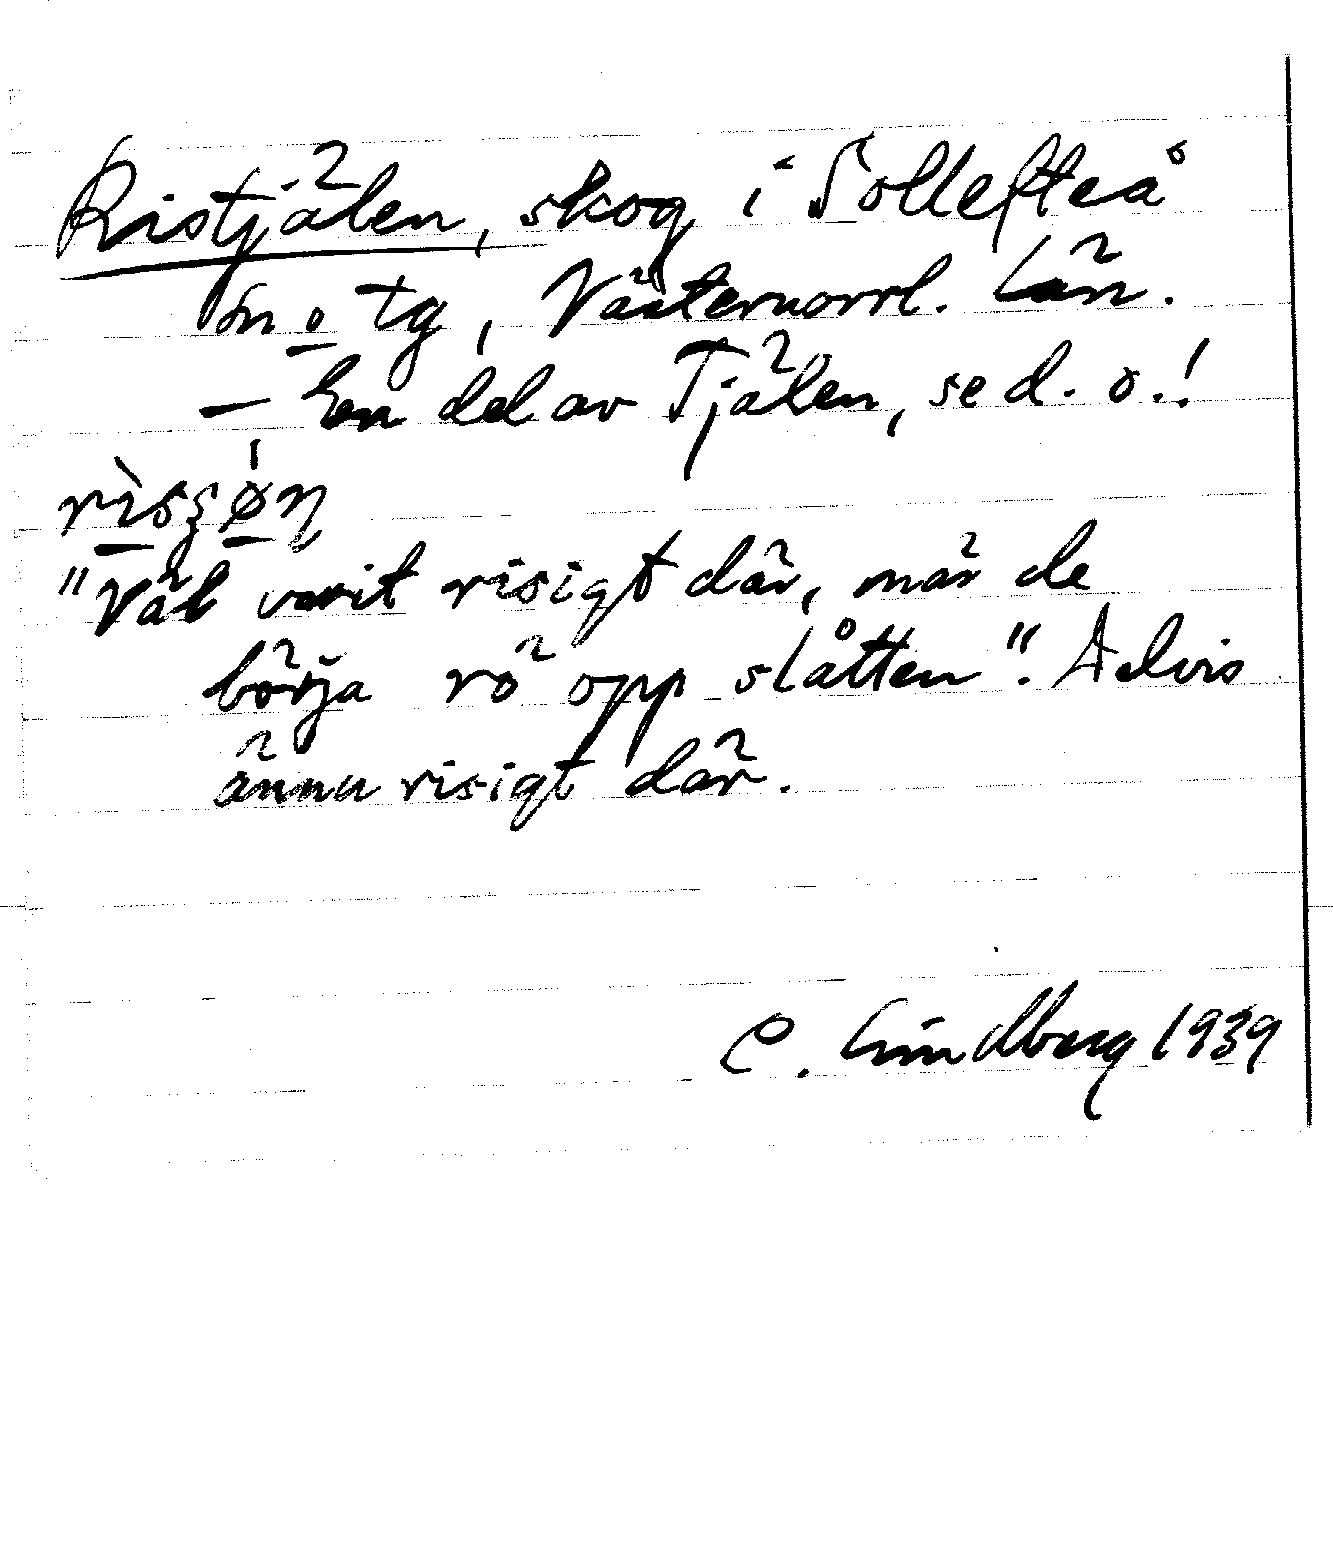 Ristjälen, skog i Sollefteå
sn o tg, Västernorrl. län.
— En del av Tjälen, se d. o.!
"Väl varit risigt där, när de
börja rö opp slåtten". Delvis
ännu risigt där.
C. Lindberg 1939